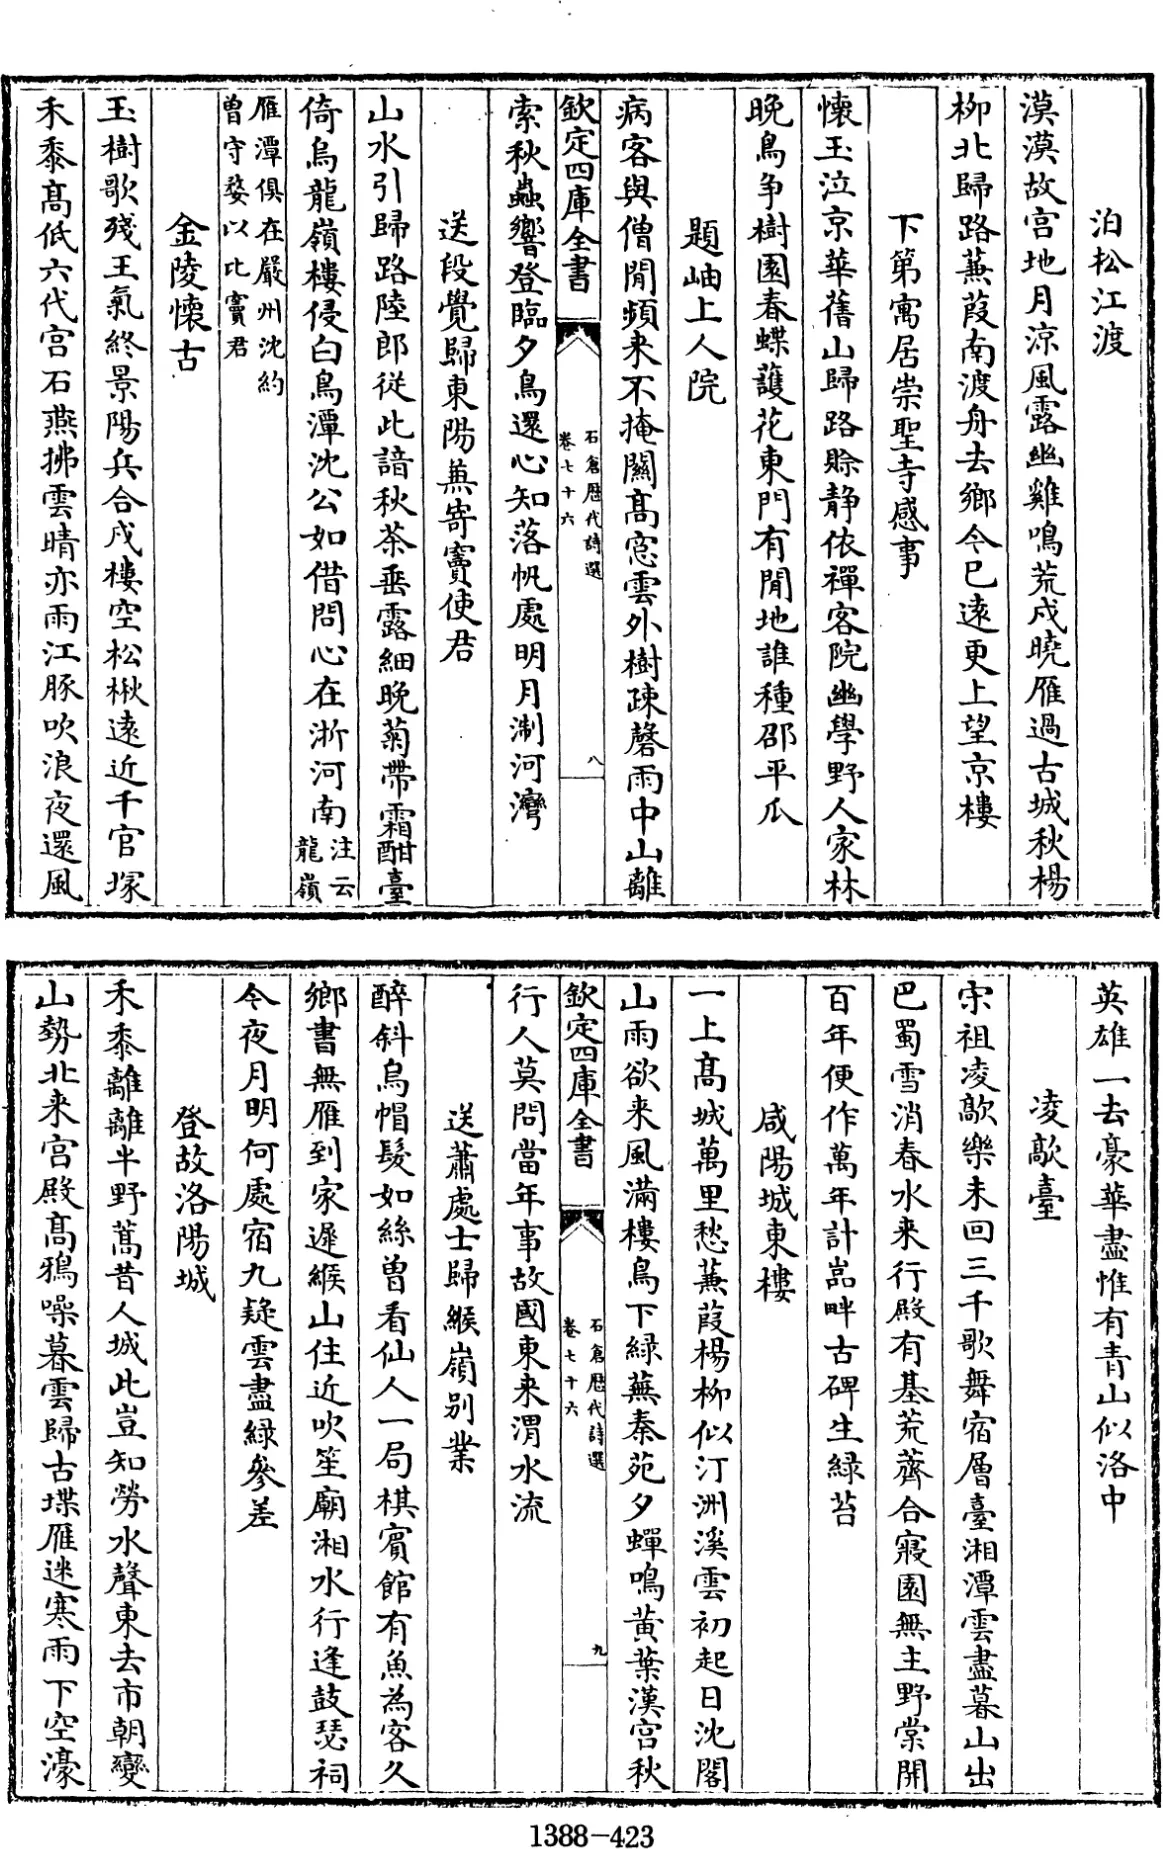 泊松江渡
漠漠故宫地月涼風露幽雞鳴荒戍曉雁過古城秋楊
柳北歸路蒹葭南渡舟去鄉今已逺更上望京樓
下第寓居崇聖寺感事
懷玉泣京華舊山歸路賖靜依禪客院幽學野人家林
晩鳥争樹園春蝶護花東門有閒地誰種邵平瓜
題岫上人院
病客與僧閒頻來不掩關高窓雲外樹疎磬雨中山離
欽定四庫全書
石倉歷代詩選
卷七十六
八
索秋蟲響登臨夕鳥還心知落帆處明月淛河灣
送段覺歸東陽蒹寄竇使君
山水引歸路陸郎從此諳秋茶垂露細晩菊帶霜酣臺
倚烏龍嶺樓侵白鳥潭沈公如借問心在浙河南注云龍嶺
雁潭俱在嚴州沈約
曾守婺以比竇君
金陵懐古
玉樹歌殘王氣終景陽兵合戍樓空松楸逺近千官塚
禾黍髙低六代宫石燕拂雲晴亦雨江豚吹浪夜還風
英雄一去豪華盡惟有青山似洛中
凌歊臺
宋祖凌歊樂未回三千歌舞宿層臺湘潭雲盡暮山出
巴蜀雪消春水来行殿有基荒薺合寢園無主野棠開
百年便作萬年計嵓畔古碑生緑苔
咸陽城東樓
一上髙城萬里愁蒹葭楊柳似汀洲溪雲初起日沈閣
山雨欲来風滿樓鳥下緑蕪秦苑夕蟬鳴黄葉漢宫秋
欽定四庫全書
石倉歷代詩選
卷七十六
九
行人莫問當年事故國東来渭水流
送蕭處士歸緱嶺别業
醉斜烏帽髮如絲曾看仙人一局棋賓館有魚為客久
鄉書無雁到家遲緱山住近吹笙廟湘水行逢鼓瑟祠
今夜月明何處宿九疑雲盡緑參差
登故洛陽城
禾黍離離半野蒿昔人城此豈知勞水聲東去市朝變
山勢北来宫殿髙鴉噪暮雲歸古堞雁迷寒雨下空濠
1388-423